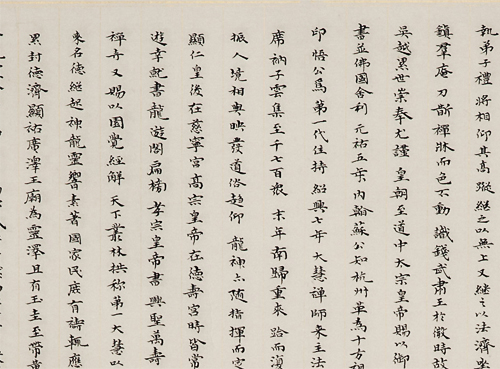 執弟子禮 將相具高躅繼之以無上又繼之以法濟坐
鎮羣庵刀斮禪牀而色不動識錢武肅王於微時故
吳越累世崇奉尤謹 皇朝至道中太宗皇帝賜以御
書並佛國舍利 元祐五年內翰蘇公知杭州革為十方祖
印悟公為第一代住持紹興七年大慧禪師來主法
席衲子雲集至千七百眾 末年南歸重來 踣而復
振人境相與映發道俗趍仰 龍神亦隨指揮而定
顯仁皇后在慈寧宮高宗皇帝在德壽宮時皆常
遊幸就書龍遊閣扁榜 孝宗皇帝書興聖萬壽
禪寺又賜以圓覺經解 天下叢林拱稱第一大慧以
來名德繼起神龍靈響素著國家民庶有禱輒應
累封德濟顯祐廣澤王廟為靈澤且有玉圭